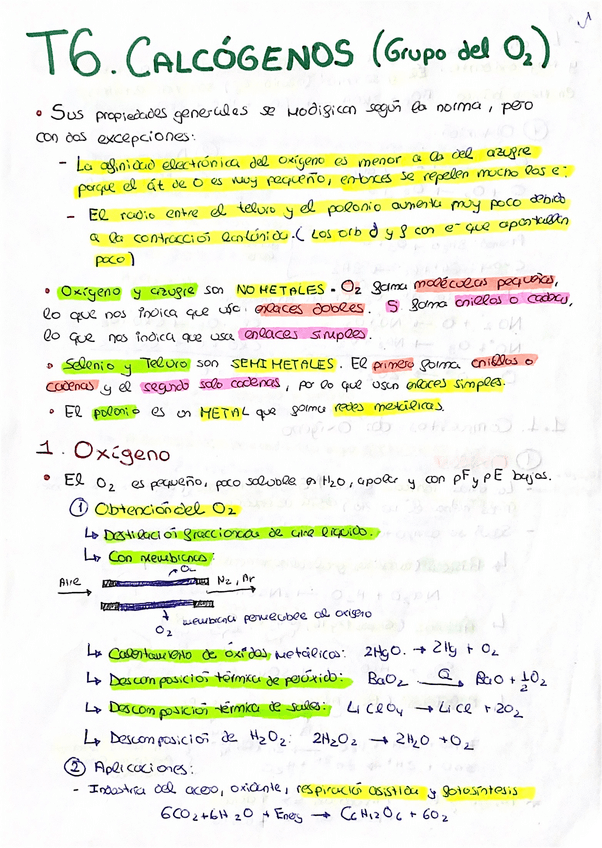 T6. CALCÓGENOS (Grupo del O2)
• Sus propiedades generales se modifican según la norma, pero
con dos excepciones:
- La afinidad electrónica del oxígeno es menor a la del azufre
porque el át de O es muy pequeño, entonces se repelen mucho los e-
- El radio entre el teluro y el polonio aumenta muy poco debido
a la contracción lantánida. (Los orb d y f con e- que apantallan
poco)
• Oxígeno y azufre son NO METALES. O2 forma moléculas pequeñas,
lo que nos indica que usa enlaces dobles. S forma anillos o cadenas,
lo que nos indica que usa enlaces simples.
• Selenio y Teluro son SEMIMETALES. El primero forma anillos o
cadenas y el segundo solo cadenas, por lo que usan enlaces simples.
• El polonio es un METAL que forma redes metálicas.
1. Oxígeno
• El O2 es pequeño, poco soluble en H2O, apolar y con pF y pE bajos.
① Obtención del O2
↳ Destilación fraccionada de aire líquido.
↳ Con membranas:
O2
Aire → N2, Ar
O2 membrana permeable al oxígeno
↳ Calentamiento de óxidos metálicos: 2HgO → 2Hg + O2
↳ Descomposición térmica de peróxido: BaO2 →Q BaO + 1/2 O2
↳ Descomposición térmica de sales: LiClO4 → LiCl + 2O2
↳ Descomposición de H2O2: 2H2O2 → 2H2O + O2
② Aplicaciones:
- Industria del acero, oxidante, respiración asistida y fotosíntesis
6CO2 + 6H2O + Energ → C6H12O6 + 6O2